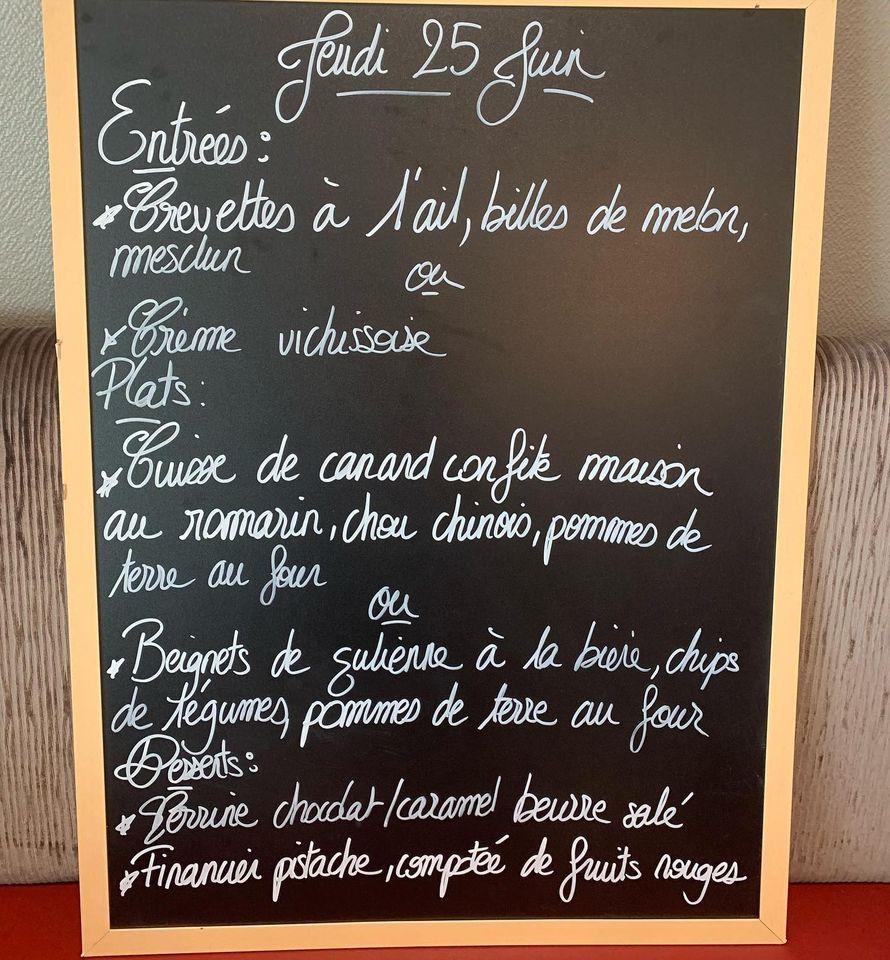 Jeudi 25 Juin
Entrées :
* Crevettes à l'ail, billes de melon,
mesclun
ou
* Crème vichissoise
Plats :
* Cuisse de canard confite maison
au romarin, chou chinois, pommes de
terre au four
ou
* Beignets de julienne à la bière, chips
de légumes, pommes de terre au four
Desserts :
* Verrine chocolat/caramel beurre salé
* Financier pistache, comptée de fruits rouges